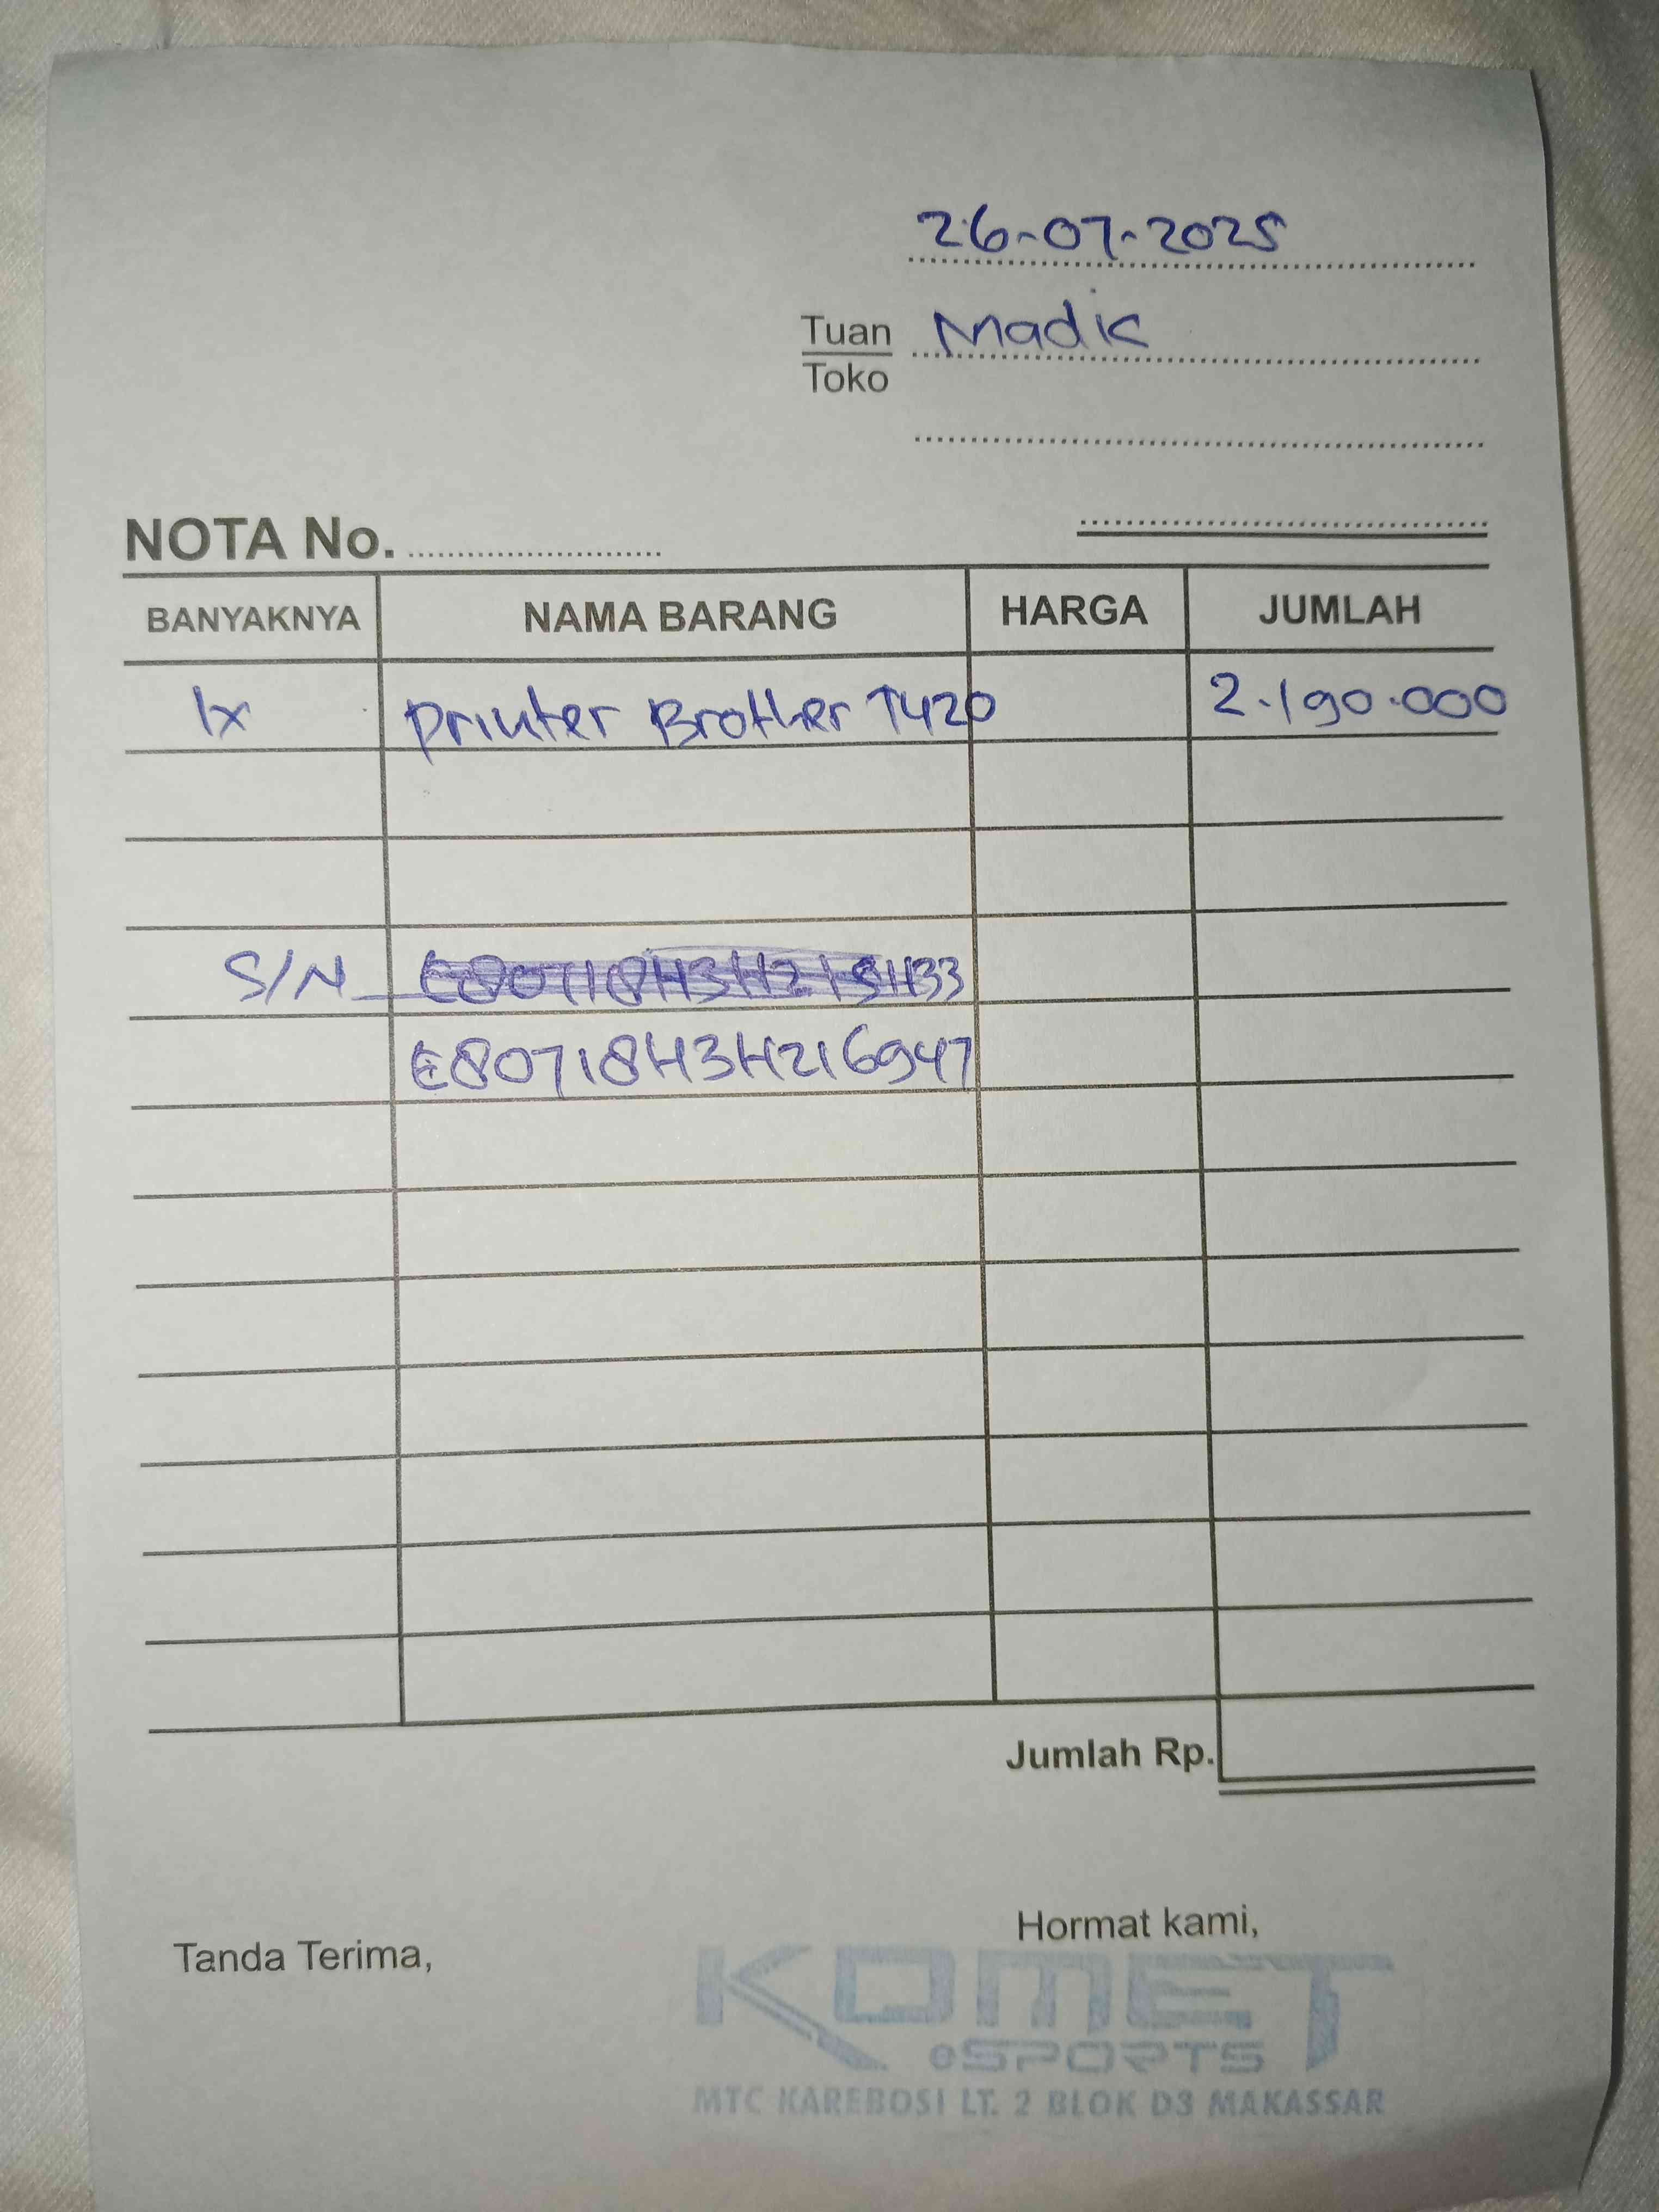 26-07-2025
Tuan Madik
Toko
NOTA No.
BANYAKNYA NAMA BARANG HARGA JUMLAH
1x Printer Brother T420 2.190.000
S/N
E80718H3H216947
Jumlah Rp.
Hormat kami,
Tanda Terima,
KOMET
eSPORTS
MTC KAREBOSI LT. 2 BLOK D3 MAKASSAR